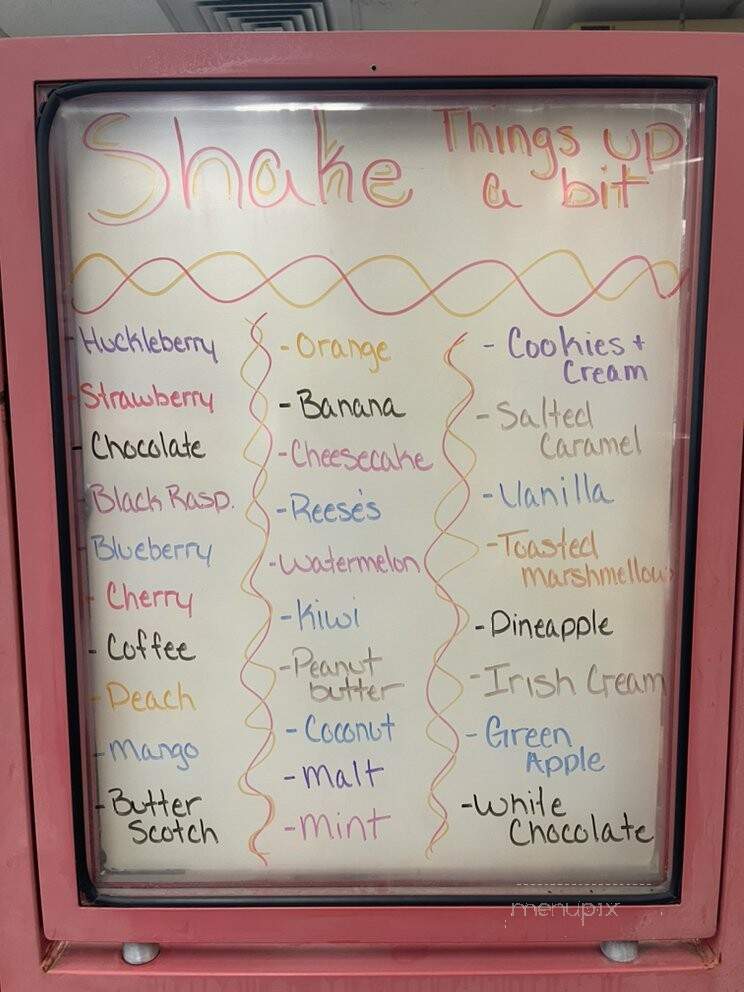 Shake Things up
a bit
- Huckleberry
- Strawberry
- Chocolate
- Black Rasp.
- Blueberry
- Cherry
- Coffee
- Peach
- Mango
- Butter
Scotch
- Orange
- Banana
- Cheesecake
- Reese's
- Watermelon
- Kiwi
- Peanut
butter
- Coconut
- Malt
- Mint
- Cookies +
Cream
- Salted
Caramel
- Vanilla
- Toasted
marshmellow
- Pineapple
- Irish Cream
- Green
Apple
- White
Chocolate
menupix